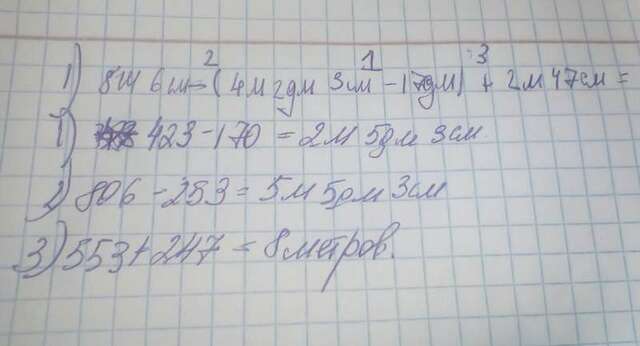 2 1 3
1) 8м 6см - (4м 2дм 3см - 17дм) + 2м 47см =
1) 423 - 170 = 2м 5дм 3см
2) 806 - 253 = 5м 5дм 3см
3) 553 + 247 = 8 метров.